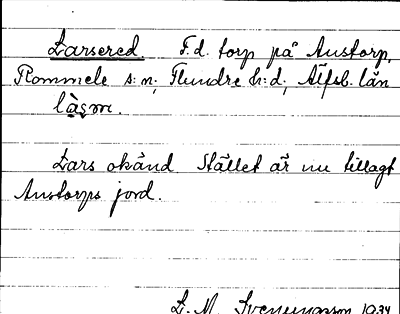 Larsered. F.d. torp på Anstorp,
Rommele s:n, Flundre h:d, Älfsb. län
Lars okänd Stället är nu tillagt
Anstorps jord.
L. M. Svenungsson 1934